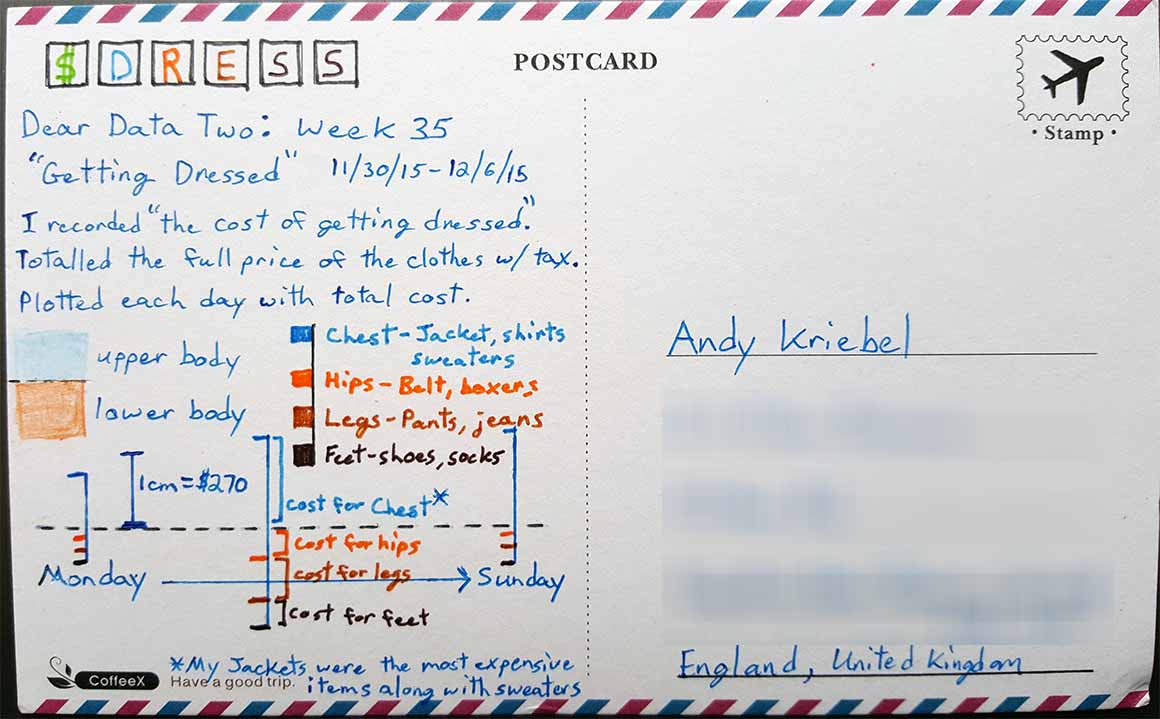 $DRESS
POSTCARD
• Stamp •
Dear Data Two: Week 35
"Getting Dressed" 11/30/15-12/6/15
I recorded "the cost of getting dressed."
Totalled the full price of the clothes w/ tax.
Plotted each day with total cost.
upper body
lower body
Chest-Jacket, shirts
sweaters
Hips-Belt, boxers
Legs-Pants, jeans
Feet-shoes, socks
1cm=$270
cost for Chest*
cost for hips
cost for legs
cost for feet
Monday
Sunday
*My Jackets were the most expensive
items along with sweaters
CoffeeX
Have a good trip.
Andy Kriebel
England, United Kingdom